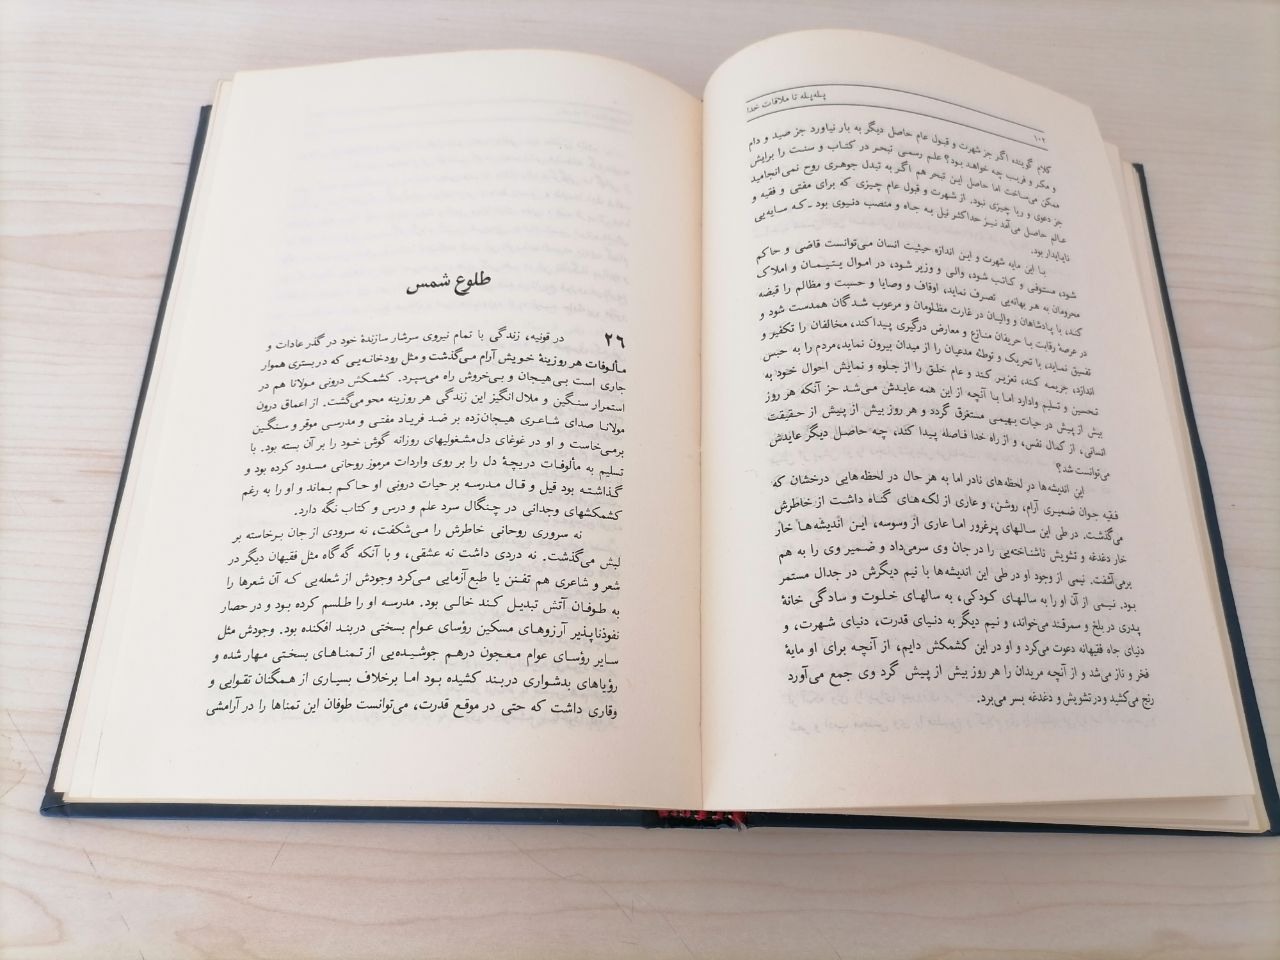 پله‌پله تا ملاقات خدا
۱۰۲
کلام گوینده اگر جز شهرت و قبول عام حاصل دیگر به بار نیاورد جز صید و دام
و مکر و فریب چه خواهد بود؟ علم رسمی تبحر در کتاب و سنت را برایش
ممکن می‌ساخت اما حاصل این تبحر هم اگر به تبدل جوهری روح نمی‌انجامید
جز دعوی و ریا چیزی نبود. از شهرت و قبول عام چیزی که برای مفتی و فقیه و
عالم حاصل می‌آمد نیز حداکثر نیل به جاه و منصب دنیوی بود ـ که سایه‌یی
ناپایدار بود.
با این مایه شهرت و این اندازه حیثیت انسان می‌توانست قاضی و حاکم
شود، مستوفی و کاتب شود، والی و وزیر شود، در اموال یتیمان و املاک
محرومان به هر بهانه‌یی تصرف نماید، اوقاف و وصایا و حسبت و مظالم را قبضه
کند، با پادشاهان و والیان در غارت مظلومان و مرعوب شدگان همدست شود و
در عرصهٔ رقابت با حریفان منازع و معارض درگیری پیدا کند، مخالفان را تکفیر و
تفسیق نماید، با تحریک و توطئه مدعیان را از میدان بیرون نماید، مردم را به حبس
اندازد، جریمه کند، تعزیر کند و عام خلق را از جلوه و نمایش احوال خود به
تحسین و تسلیم وادارد اما با آنچه از این همه عایدش می‌شد جز آنکه هر روز
بیش از پیش در حیات بهیمی مستغرق گردد و هر روز بیش از پیش از حقیقت
انسانی، از کمال نفس، و از راه خدا فاصله پیدا کند، چه حاصل دیگر عایدش
می‌توانست شد؟
این اندیشه‌ها در لحظه‌های نادر اما به هر حال در لحظه‌هایی درخشان که
فقیه جوان ضمیری آرام، روشن، و عاری از لکه‌های گناه داشت از خاطرش
می‌گذشت. در طی این سالهای پرغرور اما عاری از وسوسه، این اندیشه‌ها خار
خار دغدغه و تشویش ناشناخته‌یی را در جان وی سرمی‌داد و ضمیر وی را به هم
برمی‌آشفت. نیمی از وجود او در طی این اندیشه‌ها با نیم دیگرش در جدال مستمر
بود. نیمی از آن او را به سالهای کودکی، به سالهای خلوت و سادگی خانهٔ
پدری در بلخ و سمرقند می‌خواند، و نیم دیگر به دنیای قدرت، دنیای شهرت، و
دنیای جاه فقیهانه دعوت می‌کرد و او در این کشمکش دایم، از آنچه برای او مایهٔ
فخر و ناز می‌شد و از آنچه مریدان را هر روز بیش از پیش گرد وی جمع می‌آورد
رنج می‌کشید و در تشویش و دغدغه بسر می‌برد.
طلوع شمس
۲۶ در قونیه، زندگی با تمام نیروی سرشار سازندهٔ خود در گذر عادات و
مألوفات هر روزینهٔ خویش آرام می‌گذشت و مثل رودخانه‌یی که در بستری هموار
جاری است بی‌هیجان و بی‌خروش راه می‌سپرد. کشمکش درونی مولانا هم در
استمرار سنگین و ملال انگیز این زندگی هر روزینه محو می‌گشت. از اعماق درون
مولانا صدای شاعری هیجان‌زده بر ضد فریاد مفتی و مدرسی موقر و سنگین
برمی‌خاست و او در غوغای دل‌مشغولیهای روزانه گوش خود را بر آن بسته بود. با
تسلیم به مألوفات دریچهٔ دل را بر روی واردات مرموز روحانی مسدود کرده بود و
گذاشته بود قیل و قال مدرسه بر حیات درونی او حاکم بماند و او را به رغم
کشمکشهای وجدانی در چنگال سرد علم و درس و کتاب نگه دارد.
نه سروری روحانی خاطرش را می‌شکفت، نه سرودی از جان برخاسته بر
لبش می‌گذشت. نه دردی داشت نه عشقی، و با آنکه گه‌گاه مثل فقیهان دیگر در
شعر و شاعری هم تفنن یا طبع‌آزمایی می‌کرد وجودش از شعله‌یی که آن شعرها را
به طوفان آتش تبدیل کند خالی بود. مدرسه او را طلسم کرده بود و در حصار
نفوذناپذیر آرزوهای مسکین رؤسای عوام بسختی دربند افکنده بود. وجودش مثل
سایر رؤسای عوام معجون درهم جوشیده‌یی از تمناهای بسختی مهار شده و
رؤیاهای بدشواری دربند کشیده بود اما برخلاف بسیاری از همگنان تقوایی و
وقاری داشت که حتی در موقع قدرت، می‌توانست طوفان این تمناها را در آرامشی